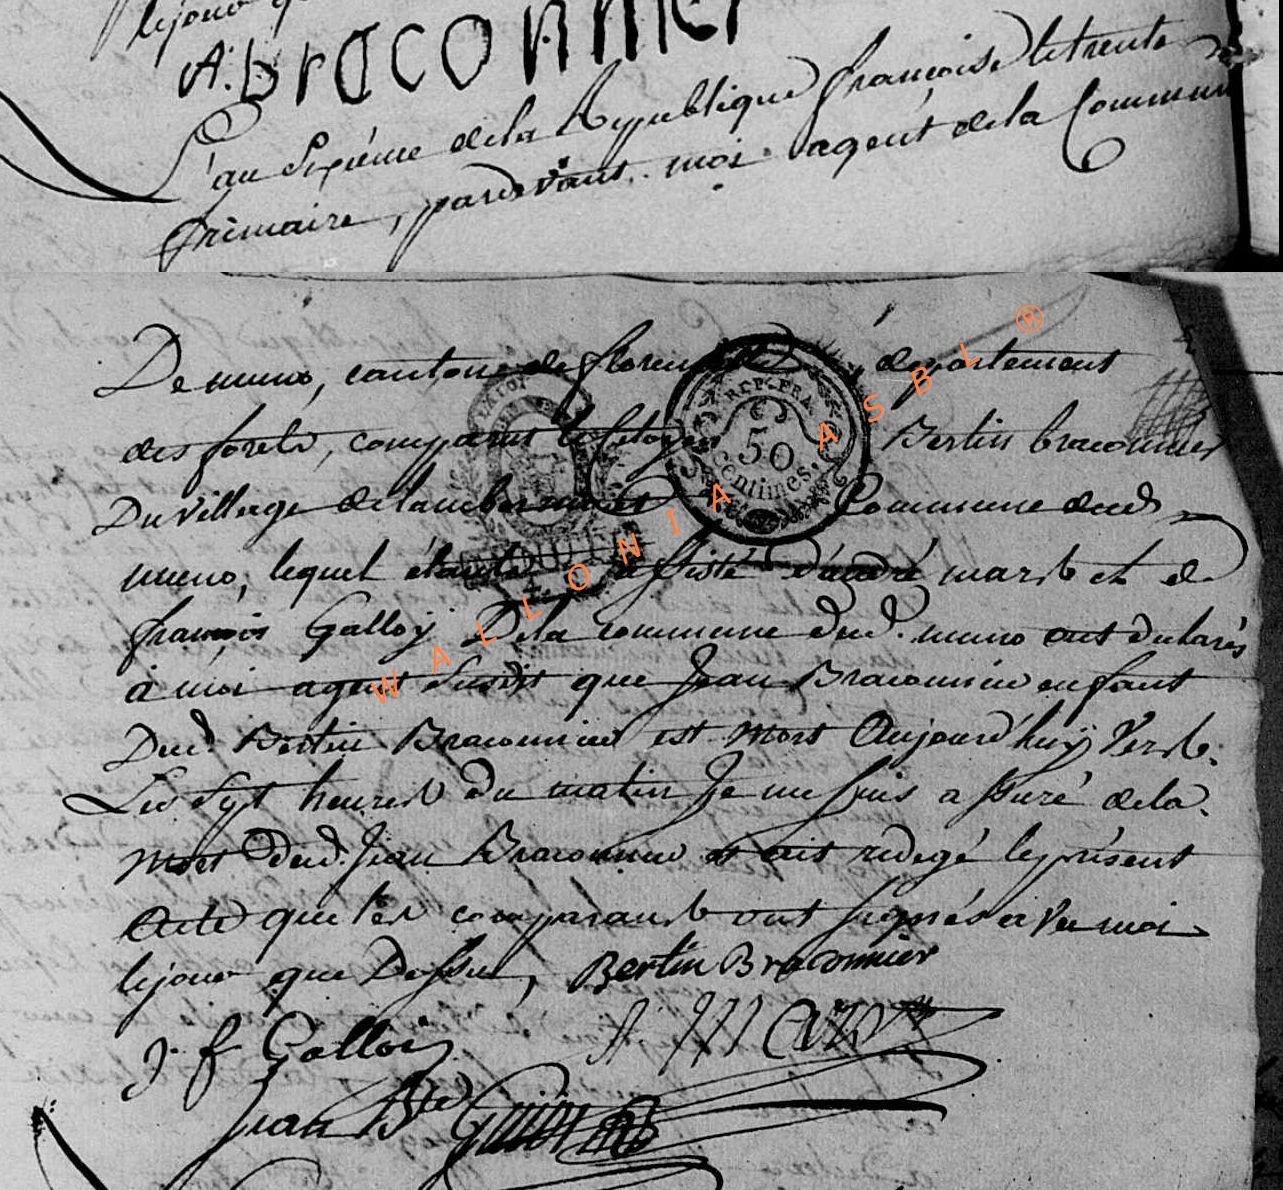 lejour q
A. braconnier
L'an Sixiéme dela Republique françoise letrente
frimaire, pardevant moi agent dela Commune
De muno, canton de florenville, departement
des forets, comparut le Citoyen Bertin braconnier
Du village delambermont Commune dud
muno, lequel étante assisté d'andré mars et de
françois Galloÿ Dela commune dud. muno ont declarés
à moi agent Susdit que Jean Braconnier enfant
Dud Bertin Braconnier est mort Aujourd'huÿ Vers
Les Sept heures du matin Je me suis assuré dela
Mort dud. Jean Braconnier et ais redegé le présent
Acte que les comparants ont signés avec moi
lejour que Dessus, Bertin Braconnier
J. f Gallois A. Mars
Jean Bte
REP. FRA.
50
Centimes.
LA LOI
WALLONIA ASBL ®